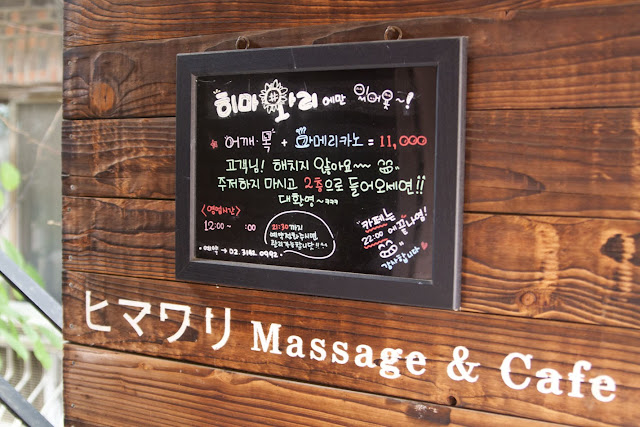 히마와리 에만 있어욧~!
* 어깨·목 + 아메리카노 = 11,000
고객님! 해치지 않아요~~
주저하지 마시고 2층으로 들어오세연!!
대환영~ㅋㅋㅋ
<영업시간>
12:00 ~ :00
21:30까지
예약전화주시면
관리가능합니다!!~
예약 → 02.3141.0992.
카페는
22:00 에 끄나영!
감사합니다
ヒマワリ Massage & Cafe